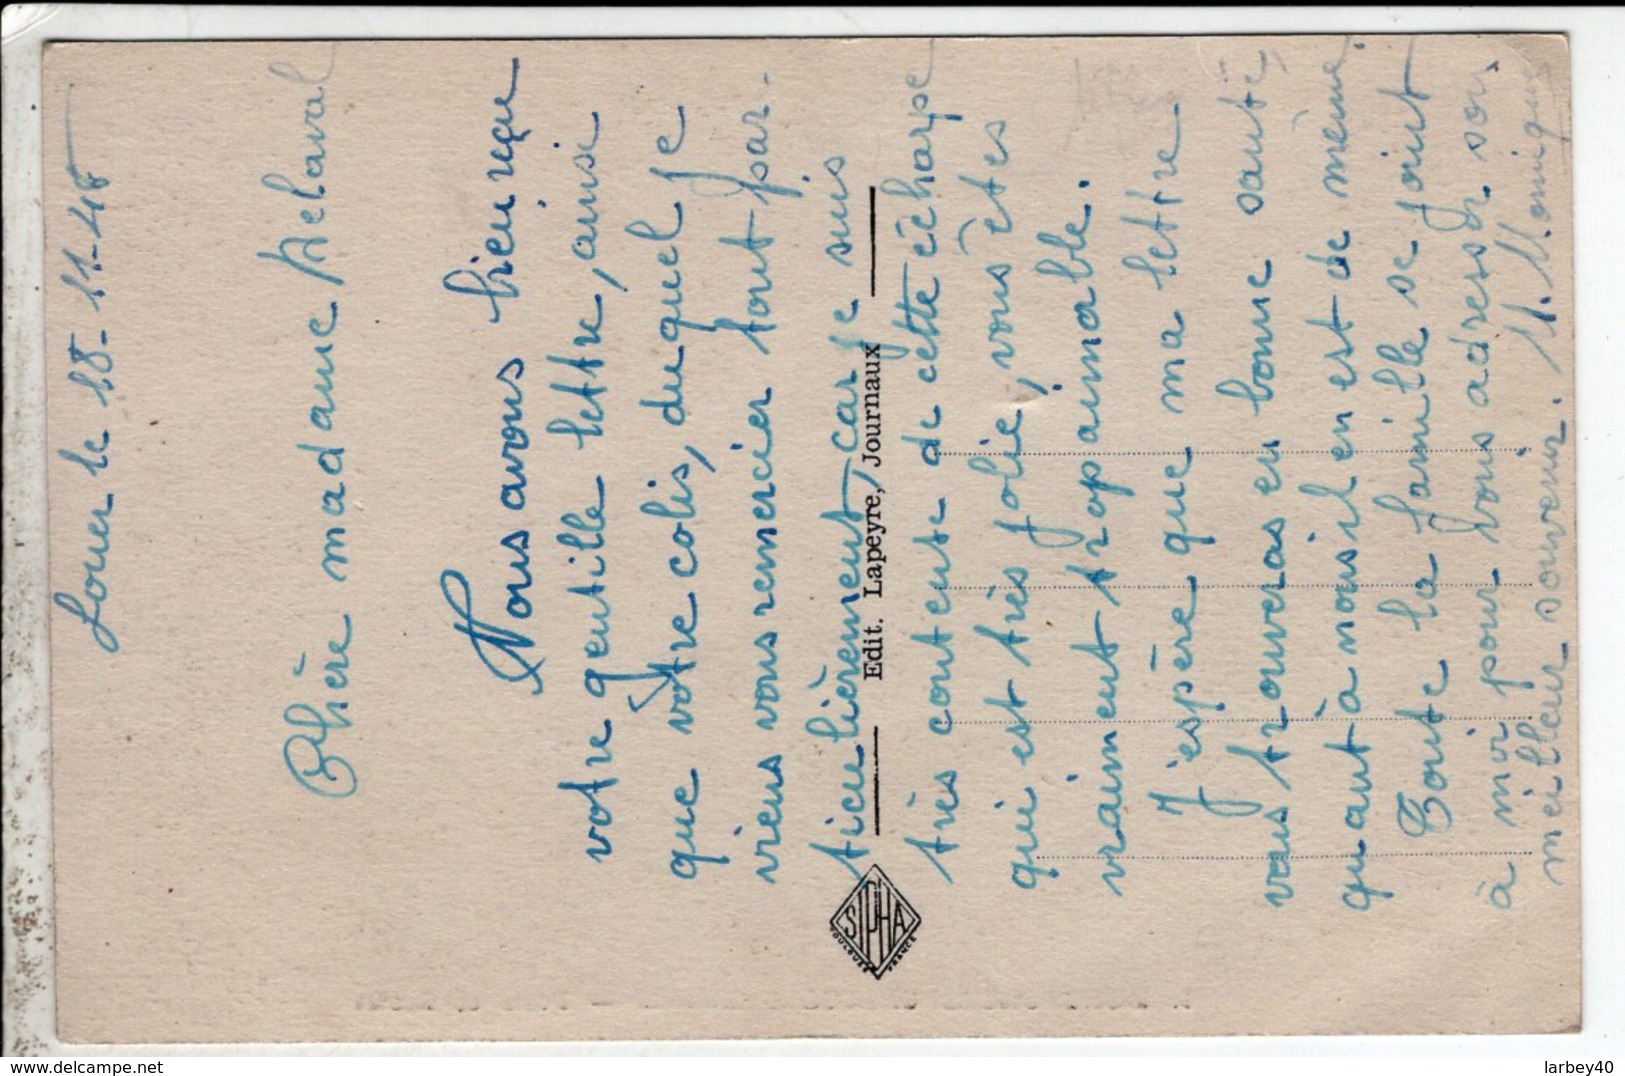 le 18-11-45
Chère madame Delaval
Nous avons bien reçue
votre gentille lettre, ainsi
que votre colis, duquel je
viens vous remercier tout par-
ticulièrement, car je suis
très contente de cette écharpe
qui est très jolie, vous êtes
vraiment trop aimable.
J'espère que ma lettre
vous trouveras en bonne santé,
quant à nous il en est de même.
Toute la famille se joint
à moi pour vous adresser son
meilleur souvenir. M. Monique
Edit. Lapeyre, Journaux
SIPHA
TOULOUSE
FRANCE
larbey40